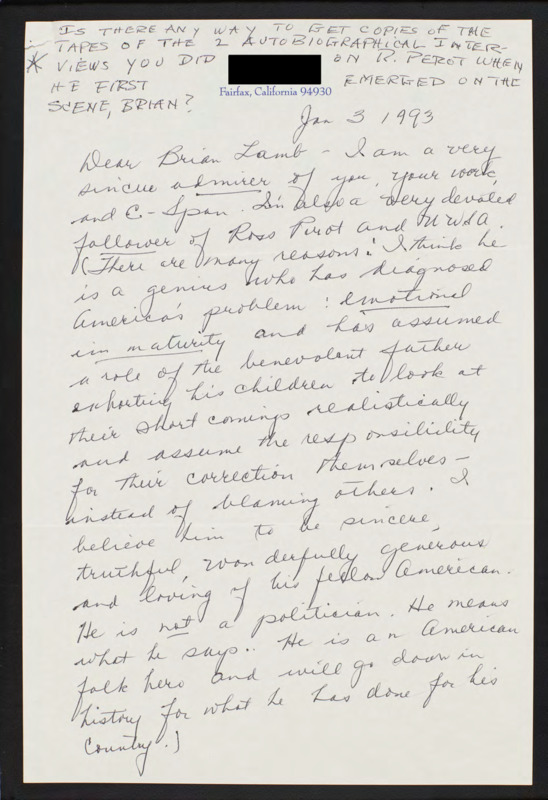 IS THERE ANY WAY TO GET COPIES OF THE
TAPES OF THE 2 AUTOBIOGRAPHICAL INTER-
* VIEWS YOU DID ON R. PEROT WHEN
HE FIRST EMERGED ON THE
SCENE, BRIAN?
Fairfax, California 94930
Jan 3 1993
Dear Brian Lamb - I am a very
sincere admirer of you, your work,
and C-Span. I'm also a very devoted
follower of Ross Perot and UWSA.
(There are many reasons: I think he
is a genius who has diagnosed
America's problem: emotional
immaturity and has assumed
a role of the benevolent father
exhorting his children to look at
their short comings realistically
and assume the responsibility
for their correction themselves -
instead of blaming others. I
believe him to be sincere,
truthful, wonderfully generous
and loving of his fellow American.
He is not a politician. He means
what he says.. He is an American
folk hero and will go down in
history for what he has done for his
country.)